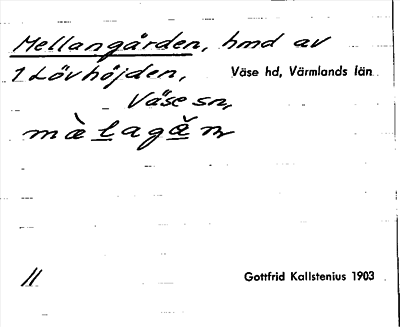 Mellangården, hmd av
1 Lövhöjden, Väse hd, Värmlands län
Väse sn,
Gottfrid Kallstenius 1903